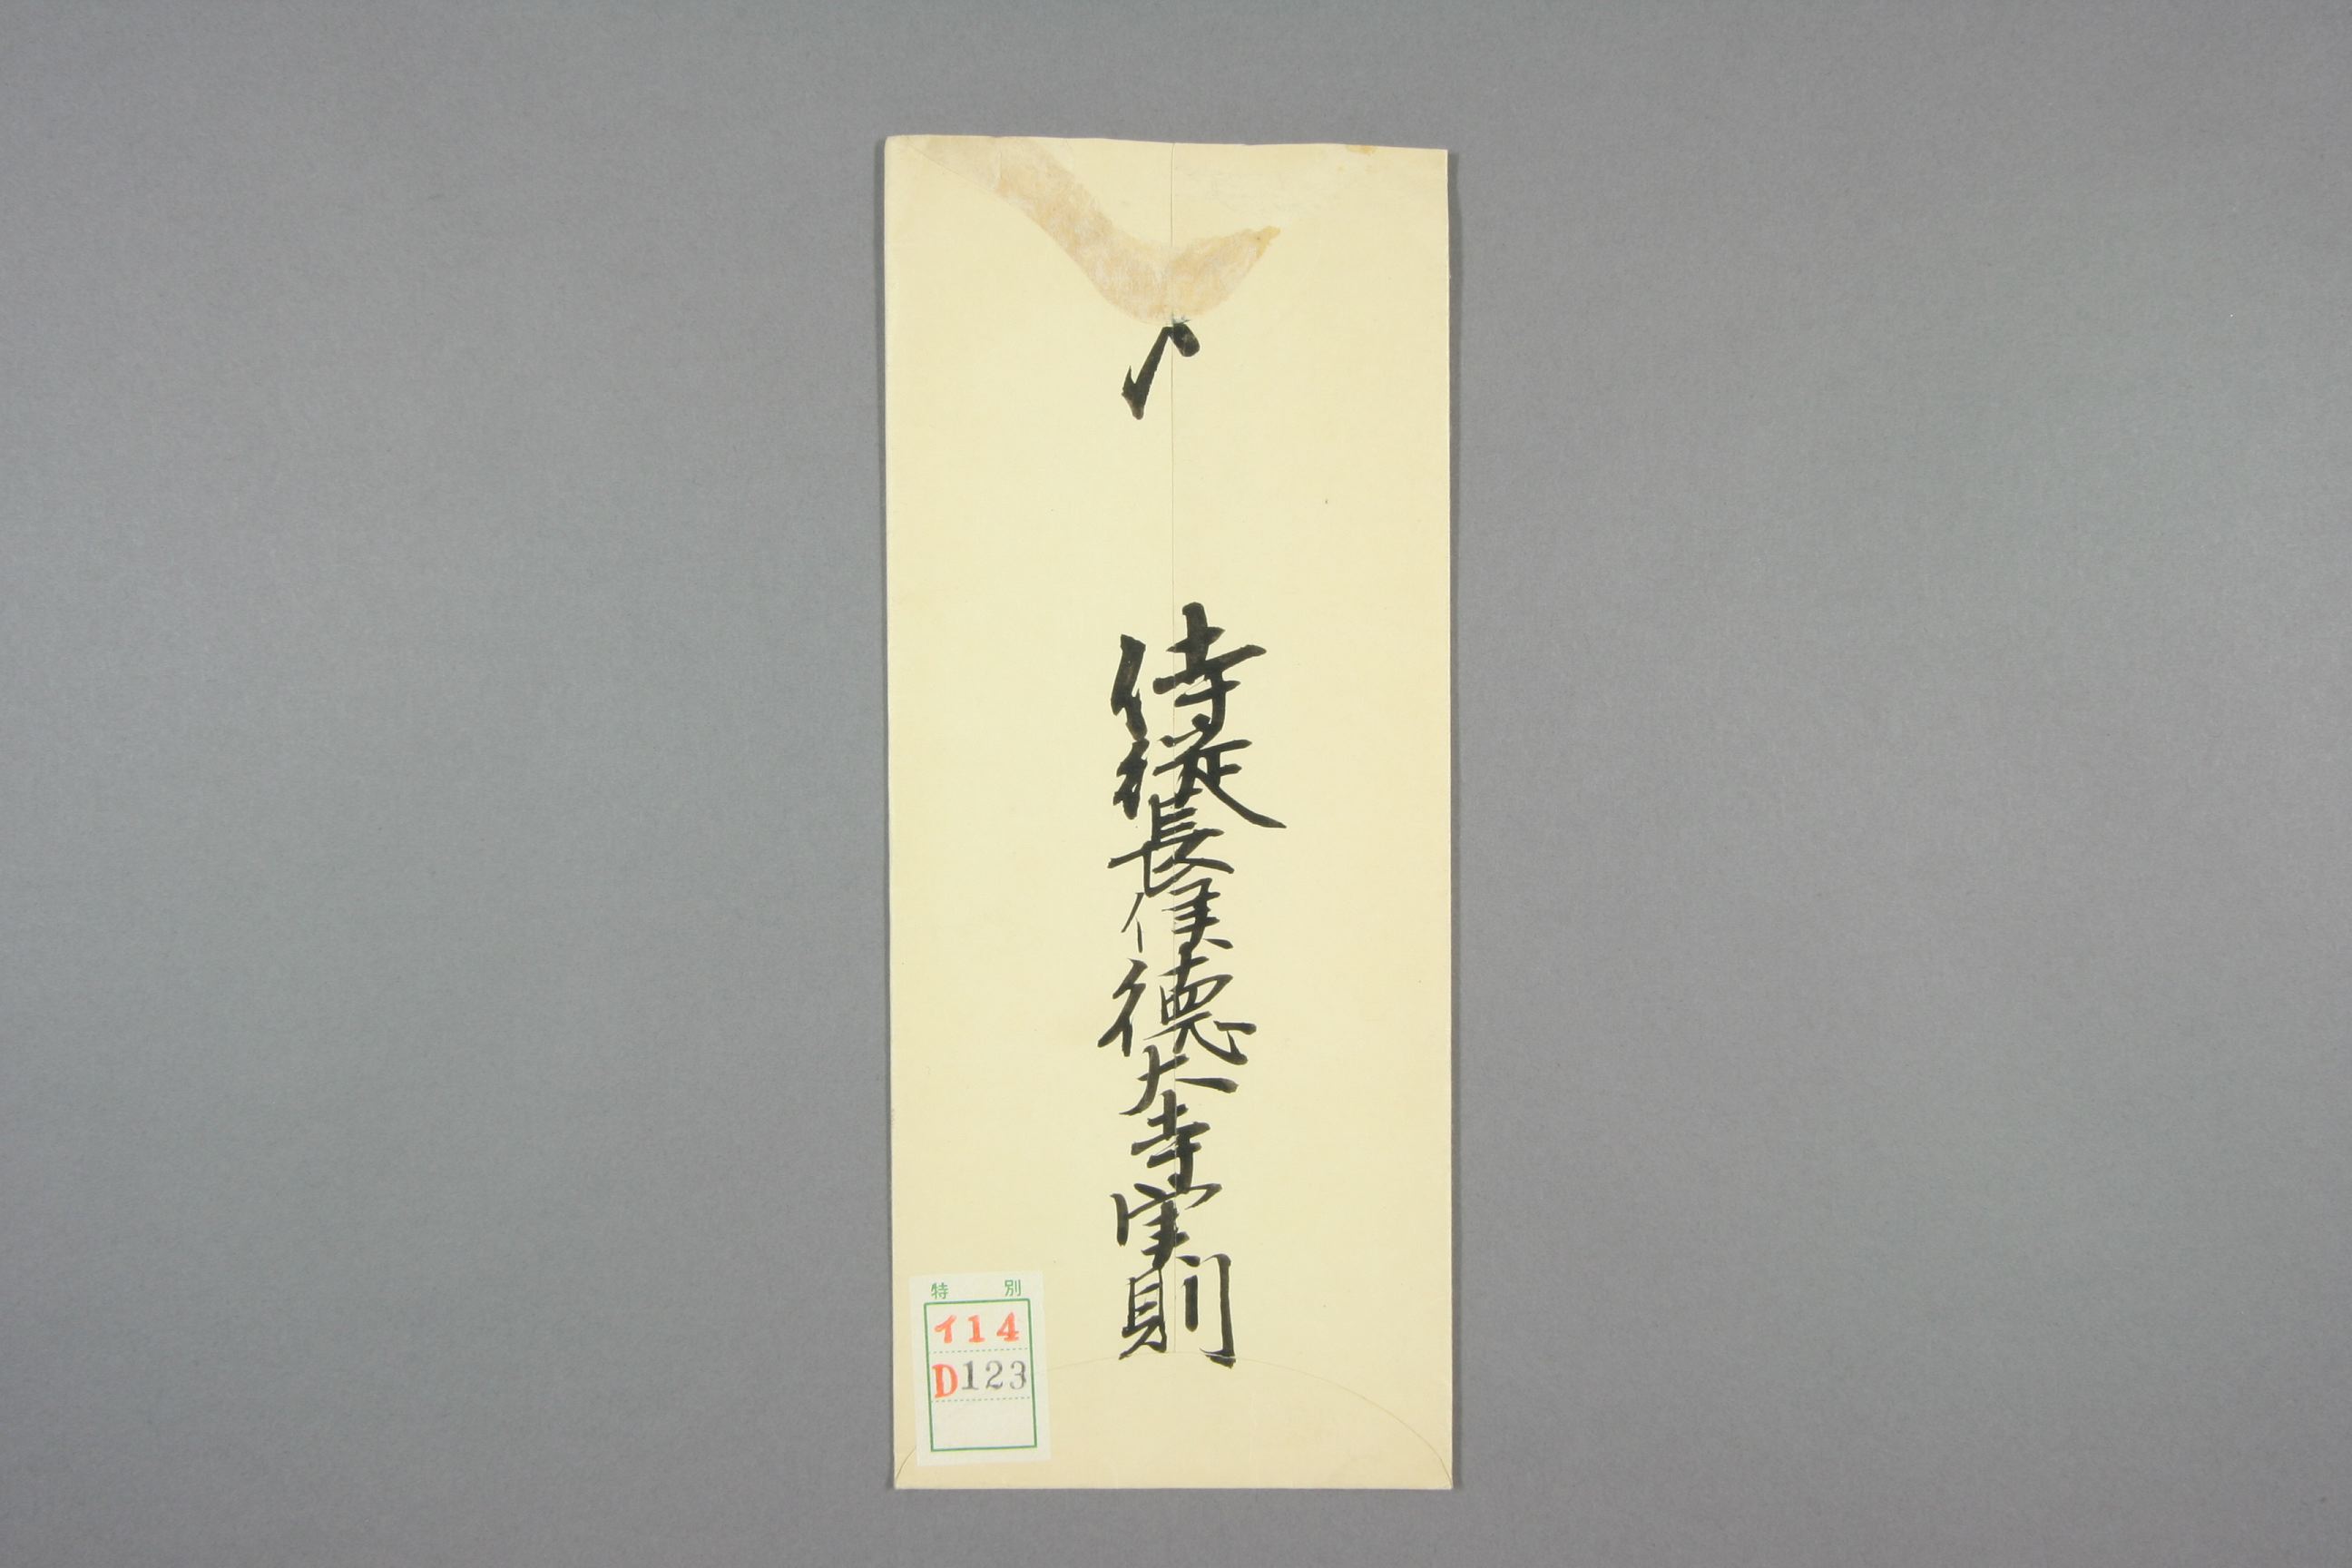 侍従長侯徳大寺実則
特別
イ14
D123